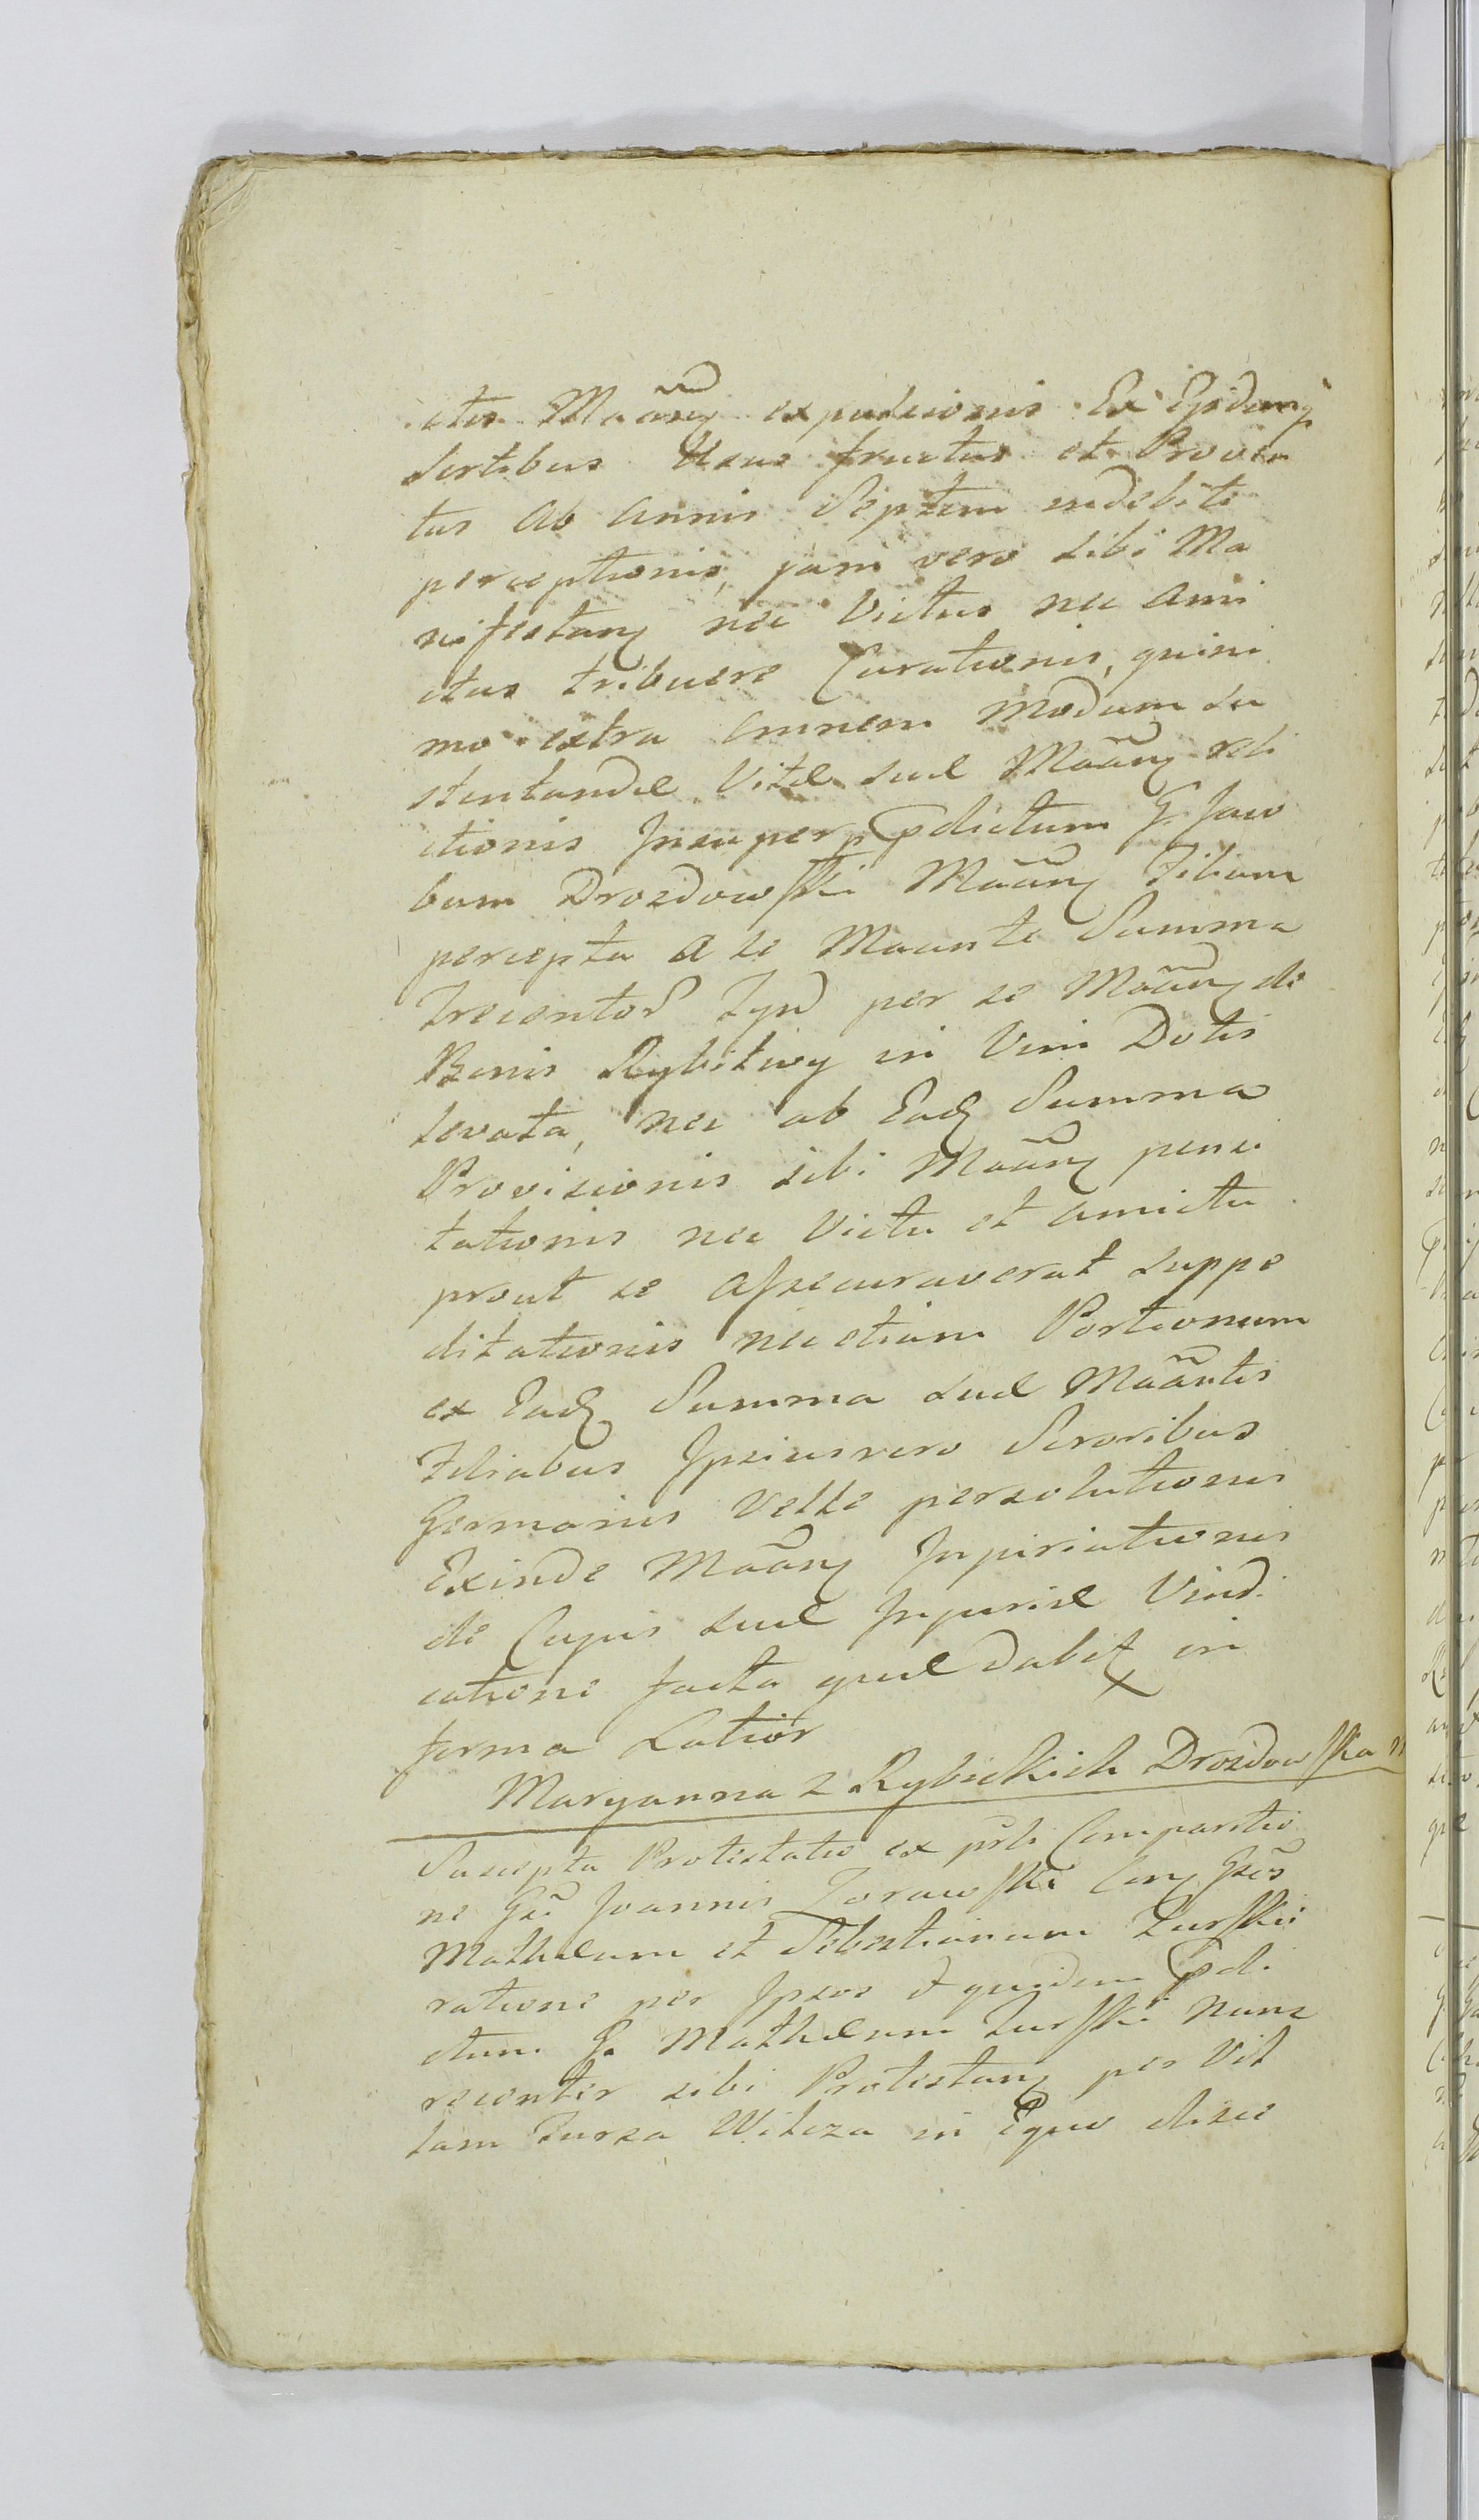 ctis Maãnt expulsionis Ex Eisdem
Sortibus Usus fructus et Proven
tus ab annis Septem indebite
perceptionis, jam vero sibi Ma
nifestant nec Victus nec ami
ctus tribuere Curationis, quini
mo extra omnem modum su
stentandæ Vitæ suæ Maãnt reli
ctionis Insuper pdictum G. Jaco
bum Drozdowski Maãnt Filium
percepta a se Maante Summa
Trecentos Tyn per se Maãnt de
Bonis Rybitwy in Vim Dotis
levata, nec ab Ead Summa
Provisionis sibi Maãnt pensi
tationis nec Victu et amictu
prout se assecuraverat suppe
ditationis nec etiam Portionum
ex Ead Summa suæ Maãntis
Filiabus Ipsius vero Sororibus
Germanis Velle persolutionis
Exinde Maãnt Injuriationis
de Cujus suæ Injuriæ Vindi
catione facta quæ dabit in
forma Latior
Maryanna z Rybickich Drozdowska
Suscepta Protestatio ex pñti Comparitio
ne Gsi Joannis Zorawski Con Gsos
Mathæum et Sebestianum Turskie
ratione per Ipsos & quidem pdi
ctum G. Mathæum Turski nunc
recenter sibi Protestant per Vil
lam Tursa Wilcza in Equo disce